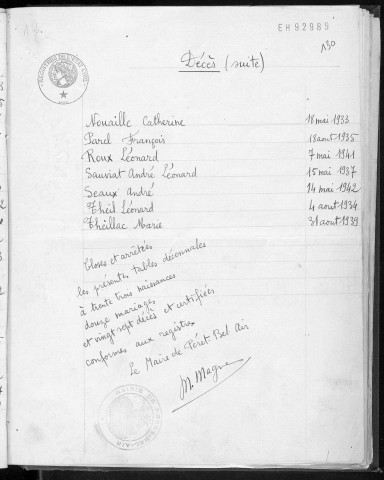 EH92989
130
Décès (suite)
Nouaille Catherine 18 mai 1933
Parel François 18 aout 1935
Roux Léonard 7 mai 1941
Sauviat André Léonard 15 mai 1937
Seaux André 14 mai 1942
Theil Léonard 4 aout 1934
Theillac Marie 31 aout 1939
Closes et arrêtées
les présentes tables décennales
à trente trois naissances
douze mariages
et vingt sept décès et certifiées
conformes aux registres
Le Maire de Péret Bel Air
M. Magne